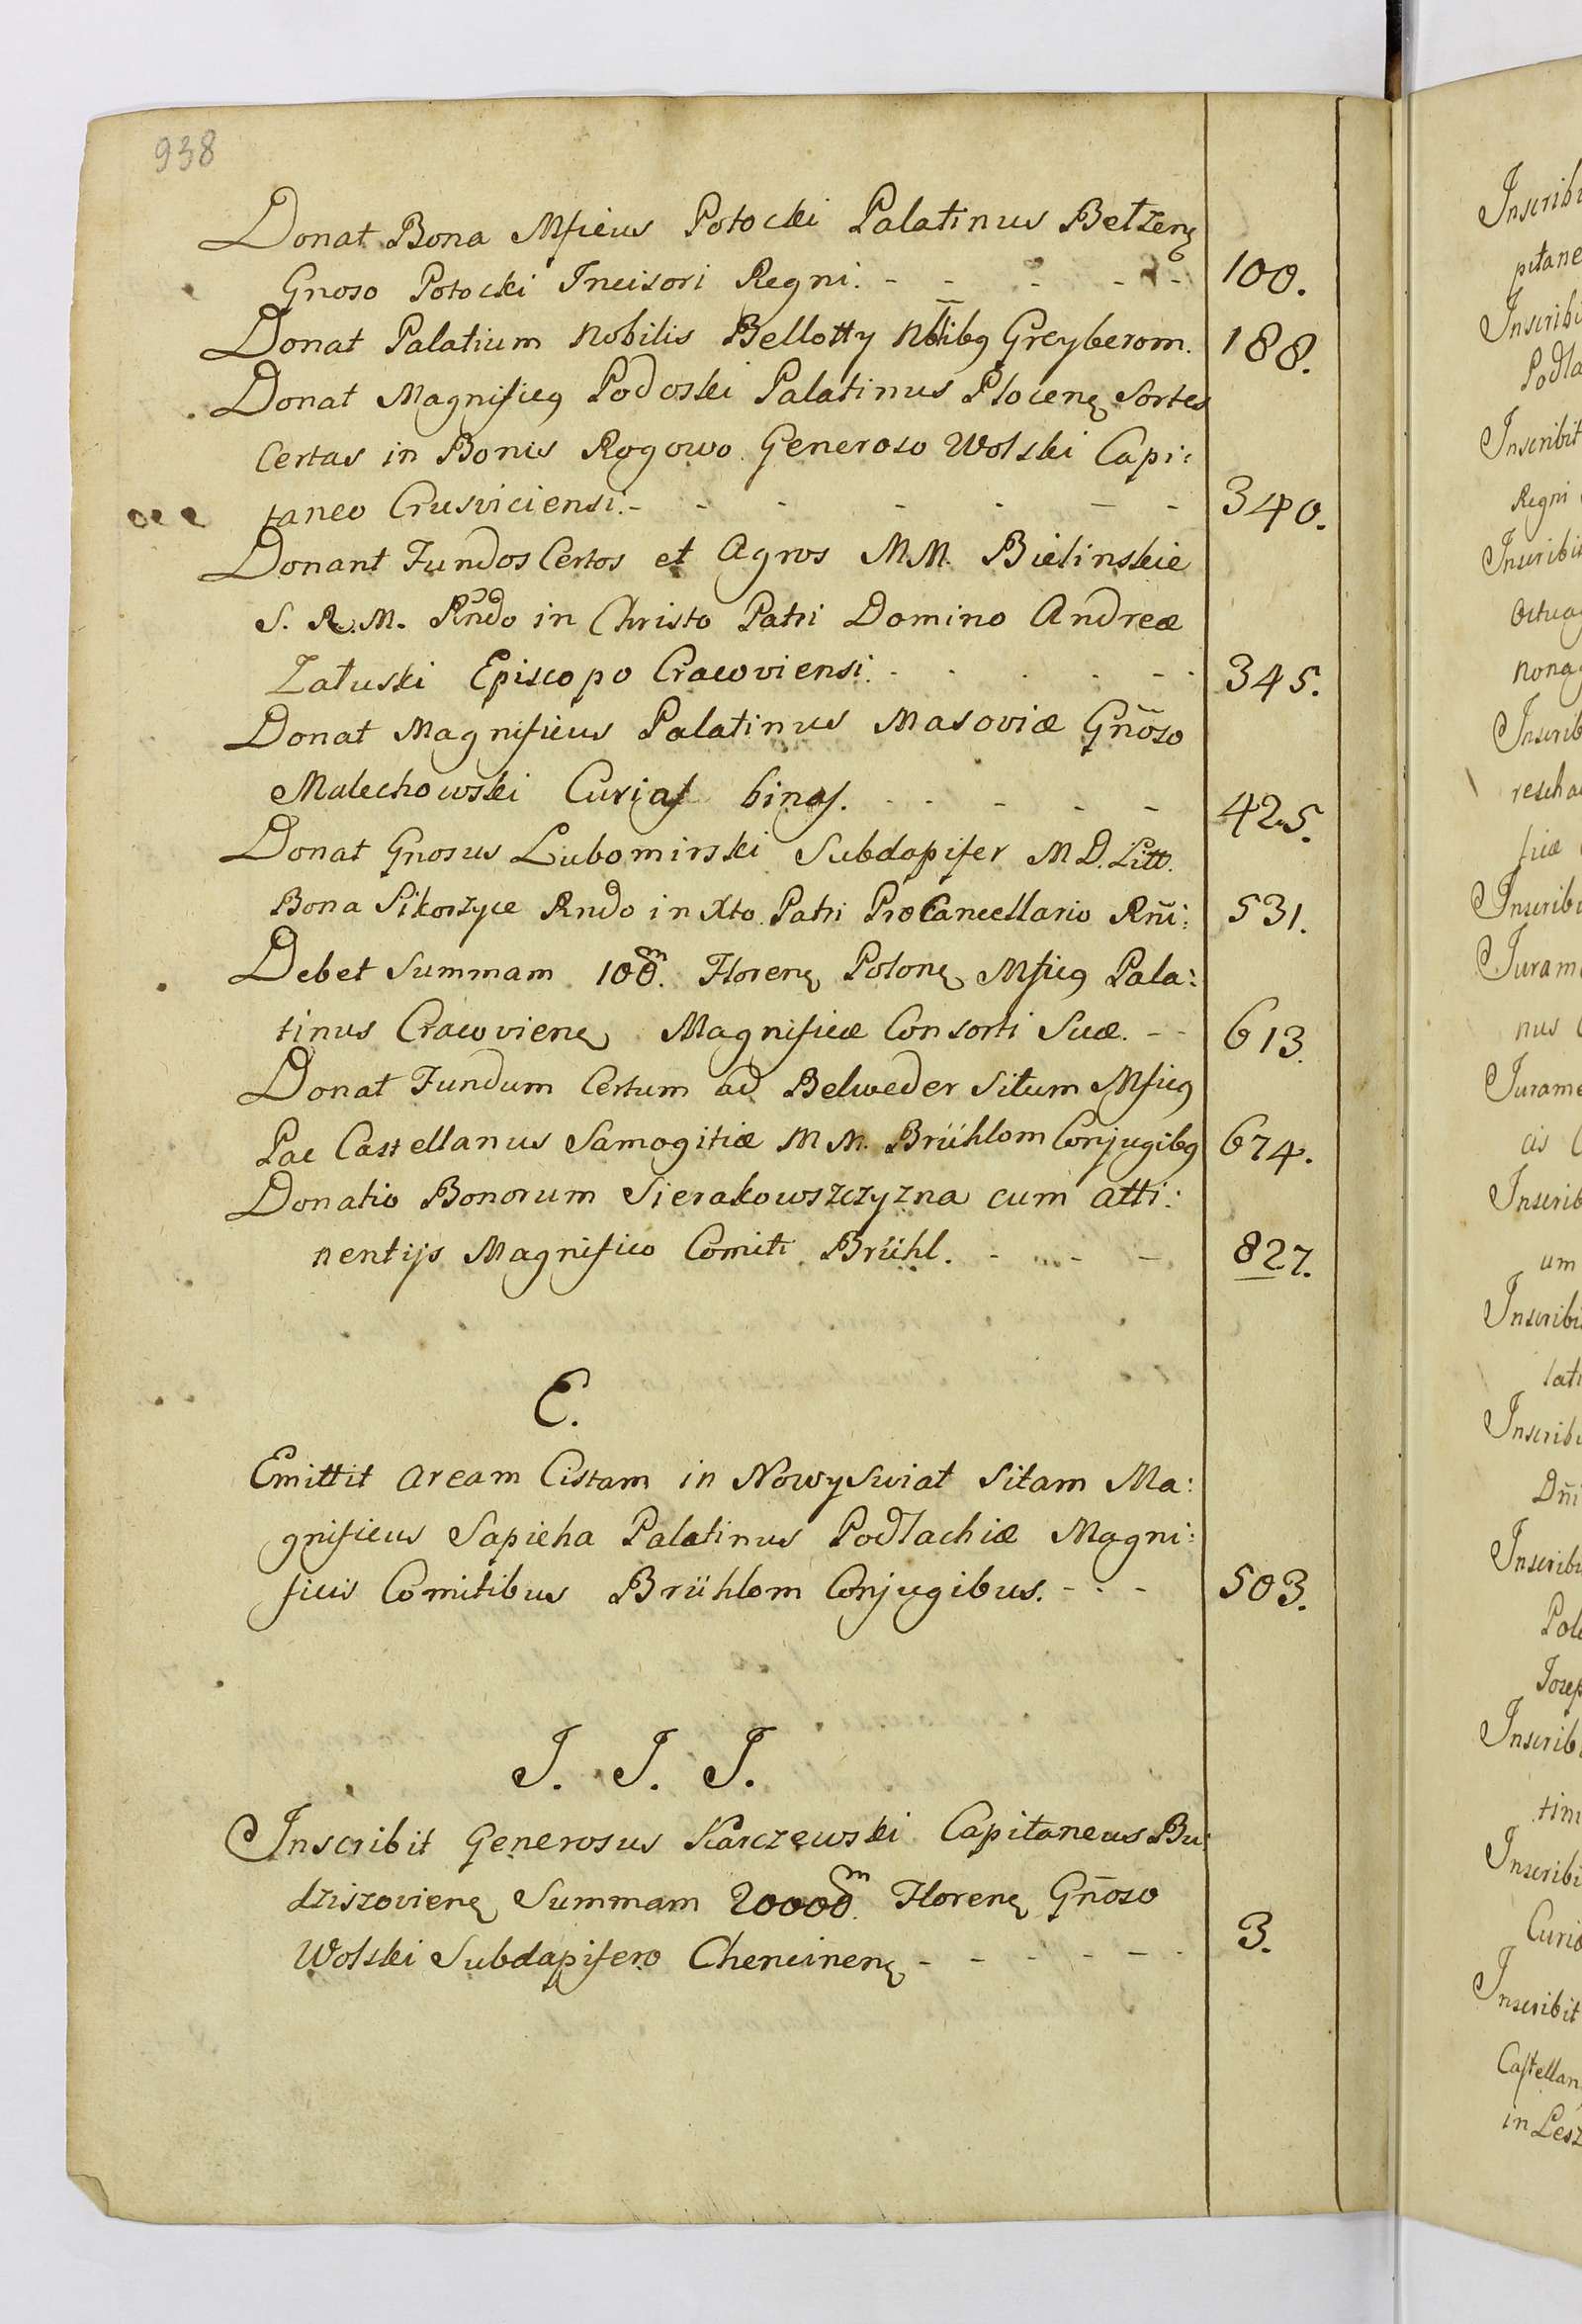 938
Donat Bona Mficus Potocki Palatinus Bełzenę
Gnoso Potocki Incisori Regni. - - - - - 100.
Donat Palatium Nobilis Bellotty Nblibq Greyberom. 188.
Donat Magnificq Podoski Palatinus Plocenę Sortes
Certas in Bonis Rogowo Generoso Wolski Capi:
taneo Crusviciensi. - - - - - - - 340.
Donant Fundos Certos et Agros M.M. Bielinskie
S. R. M. Rndo in Christo Patri Domino Andreæ
Załuski Episcopo Cracoviensi. - - - - - 345.
Donat Magnificus Palatinus Masoviæ Gñoso
Malechowski Curias binas. - - - - - 425.
Donat Gnosus Lubomirski Subdapifer M.D. Litt.
Bona Sikorzyce Rndo in Xto Patri ProCancellario Rñi: 531.
Debet Summam 100m. Florenę Polonę Mficq Pala:
tinus Cracovienę Magnificæ Consorti Suæ. - - 613.
Donat Fundum Certum ad Belweder Situm Mficq
Pac Castellanus Samogitiæ M.M. Brühlom Conjugibq 674.
Donatio Bonorum Sierakowszczyzna cum atti:
nentijs Magnifico Comiti Brühl. - - - - 827.
E.
Emittit aream Cistam in Nowy Swiat Sitam Ma:
gnificus Sapieha Palatinus Podlachiæ Magni:
ficis Comitibus Brühlom Conjugibus. - - - 503.
J. J. J.
Inscribit Generosus Karczewski Capitaneus Bu:
dziszovienę Summam 20000m. Florenę Gñoso
Wolski Subdapifero Chencinenę - - - - - - 3.
Inscrib
pitane
Inscribi
Podla
Inscribit
Regni
Inscribit
Octuag
nonag
Inscrib
rescha
ficæ
Inscribi
Juram
nus
Jurame
cis
Inscrib
um
Inscribi
lati
Inscribi
Dñi
Inscribi
Pol
Josep
Inscrib
tin
Inscribi
Curia
Inscribit
Castellan
in Lesz